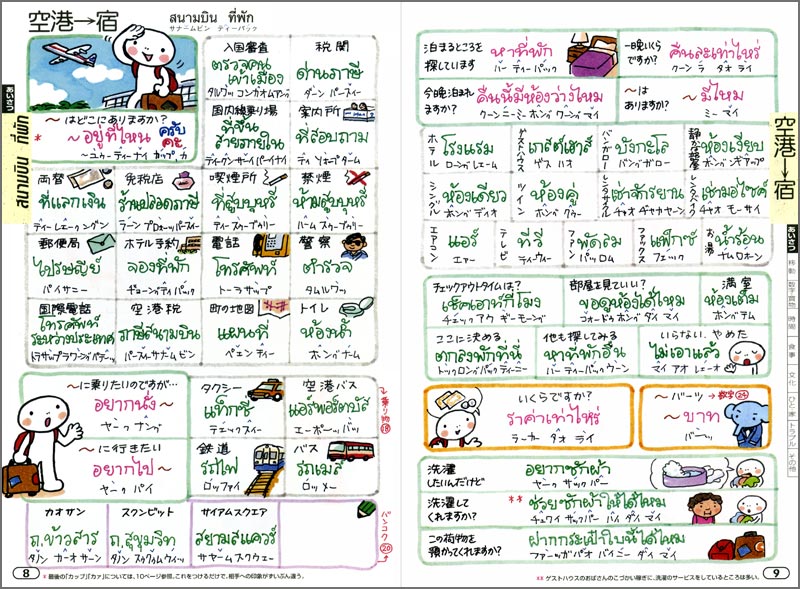 空港→宿
สนามบิน ที่พัก
サナームビン ティーパック
あいさつ
สนามบิน ที่พัก
~はどこにありますか?
* ~อยู่ที่ไหน ครับ คะ
~ユゥーティーナイ カップ カ
入国審査
ตรวจคนเข้าเมือง
税関
ด่านภาษี
ダーン パースィー
国内線乗り場
ที่ขึ้นสายภายใน
案内所
ที่สอบถาม
両替
ที่แลกเงิน
免税店
ร้านปลอดภาษี
喫煙所
ที่สูบบุหรี่
ティースープブリー
禁煙
ห้ามสูบบุหรี่
ハームスープブリー
郵便局
ไปรษณีย์
パイサニー
ホテル予約
จองที่พัก
ヂョーンティパック
電話
โทรศัพท์
トーラサップ
警察
ตำรวจ
タムルワッ
国際電話
โทรศัพท์ระหว่างประเทศ
空港税
ภาษีสนามบิน
町の地図
แผนที่
ペェンティー
トイレ
ห้องน้ำ
ホンナム
~に乗りたいのですが…
อยากนั่ง~
ヤークナンク~
~に行きたい
อยากไป~
ヤークパイ
タクシー
แท็กซี่
テェックスィー
空港バス
แอร์พอร์ตบัส
エーポーッバッ
鉄道
รถไฟ
ロッファイ
バス
รถเมล์
ロッメー
乗り物⑱
カオサン
ถ.ข้าวสาร
タノン カーオサーン
スクンビット
ถ.สุขุมวิท
タノン スクムウィッ
サイアムスクエア
สยามสแควร์
サヤームスクウェー
バンコク⑳
8
* 最後の「カップ」「カァ」については、10ページ参照。これをつけるだけで、相手への印象がずいぶん違う。
泊まるところを探しています
หาที่พัก
ハー ティーパック
一晩いくらですか?
คืนละเท่าไหร่
クーンラ タオライ
今晩泊まれますか?
คืนนี้มีห้องว่างไหม
クーンニーミー ホンワーンマイ
~はありますか?
~มีไหม
ミーマイ
空港→宿
ホテル
โรงแรม
ローンレェーム
ゲストハウス
เกสต์เฮาส์
ゲスハオ
バンガロー
บังกะโล
バンガロー
静かな部屋
ห้องเงียบ
ホンギアップ
シングル
ห้องเดี่ยว
ホンディオ
ツイン
ห้องคู่
ホンクゥー
レンタサイクル
เช่าจักรยาน
チャオヂャカヤーン
レンタバイク
เช่ามอไซค์
チャオモーサイ
エアコン
แอร์
エー
テレビ
ทีวี
ティーウィー
ファン
พัดลม
パッロム
ファックス
แฟ็กซ์
フェック
お湯
น้ำร้อน
ナムローン
チェックアウトタイムは?
เช็คเอาท์กี่โมง
チェックアウ ギーモーンク
部屋を見ていい?
ขอดูห้องได้ไหม
コォードゥホンダイマイ
満室
ห้องเต็ม
ホンテム
ここに決める
ตกลงพักที่นี่
トックロンパックティーニー
他も探してみる
หาที่พักอื่น
ハーティーパックウーン
いらない、やめた
ไม่เอาแล้ว
マイアオレェーオ
いくらですか?
ราคาเท่าไหร่
ラーカー タオライ
~バーツ
→数字㉔
~บาท
バーッ
洗濯したいんだけど
อยากซักผ้า
ヤークサックパー
洗濯してくれますか?
** ช่วยซักผ้าให้ได้ไหม
チュワイ サックパー ハイダイマイ
この荷物を預かってくれますか?
ฝากกระเป๋าใบนี้ได้ไหม
ファークガパオ バイニー ダイマイ
あいさつ
移動
数字 買物
時間
食事
文化
ひと・家
トラブル
その他
9
** ゲストハウスのおばさんのこづかい稼ぎに、洗濯のサービスをしているところは多い。